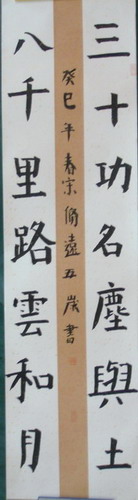 三十功名塵與土
八千里路雲和月
癸巳年春宗脩遠五歲書